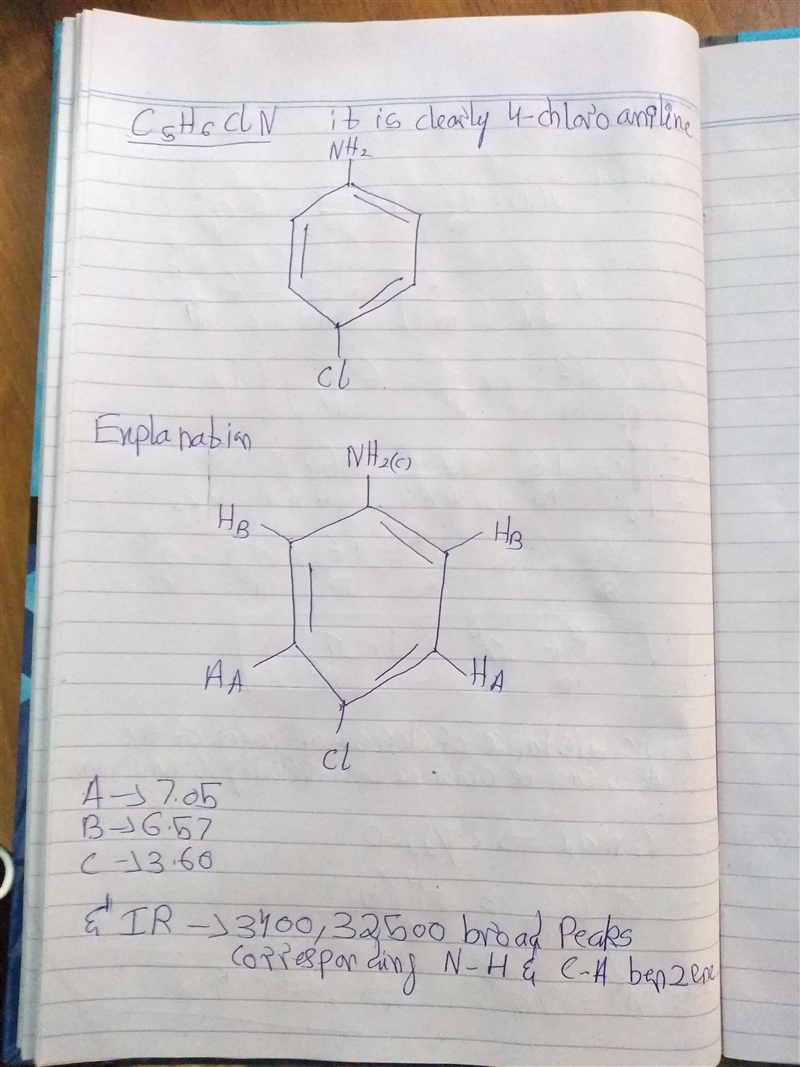 C5H6ClN it is clearly 4-chloro aniline
NH2
Cl
Explanation
NH2(C)
HB HB
AA HA
Cl
A → 7.05
B → 6.57
C → 3.60
& IR → 3400, 32500 broad Peaks
corresponding N-H & C-A benzene